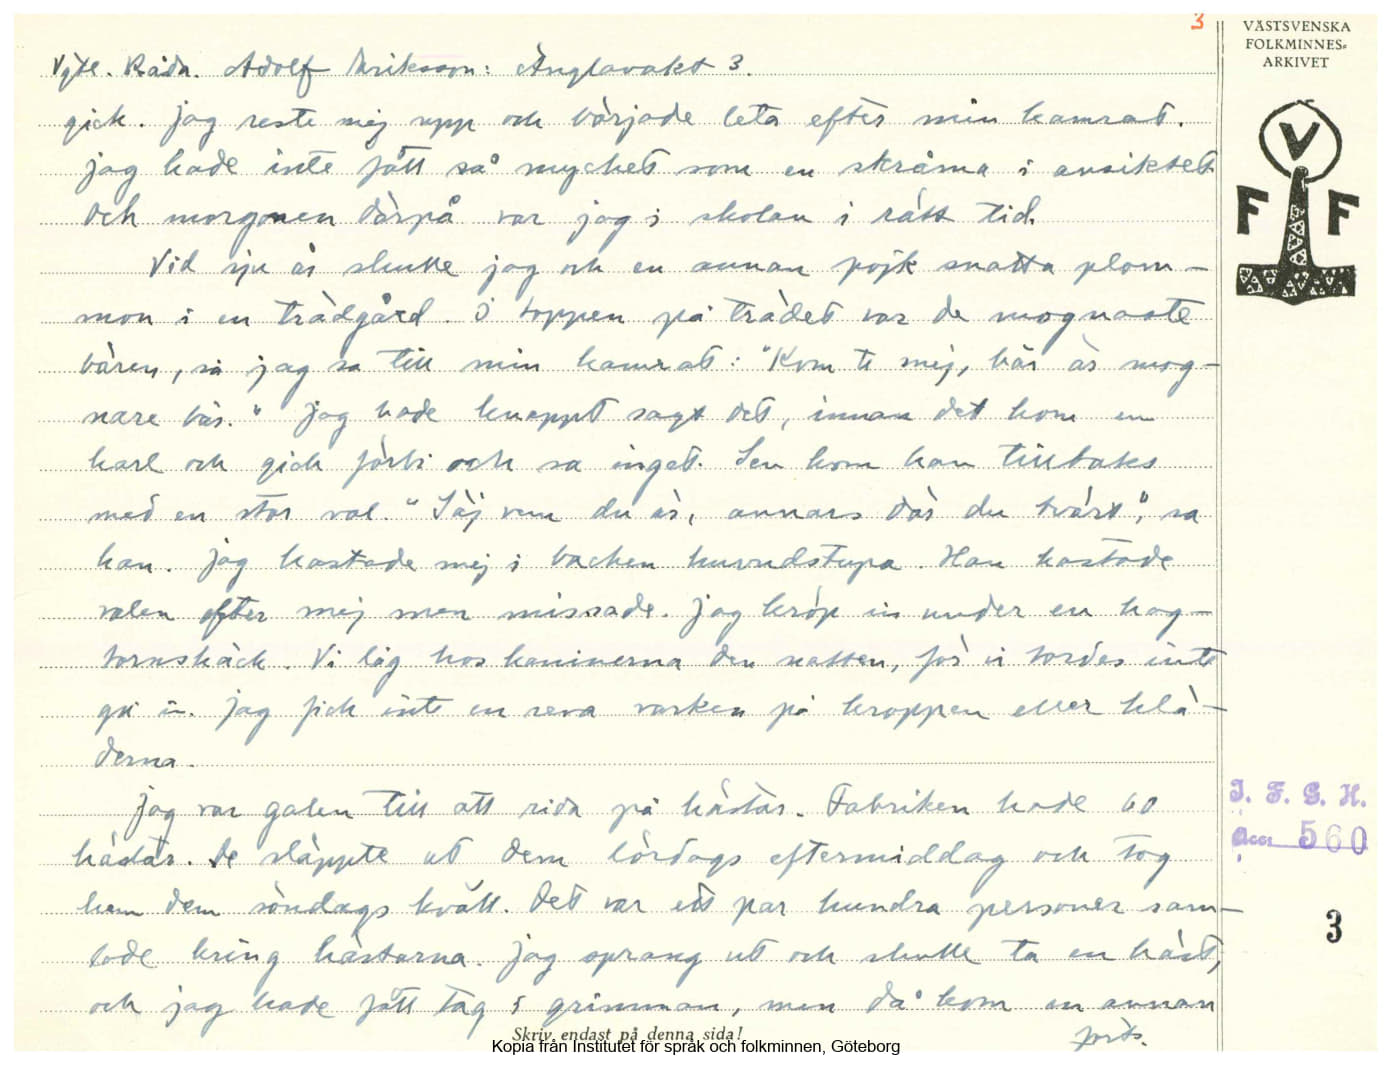 3
VÄSTSVENSKA
FOLKMINNES-
ARKIVET
V
F F
Vgtl. Råda. Adolf Eriksson: Änglavakt 3.
gick. Jag reste mej upp och började leta efter min kamrat.
Jag hade inte fått så mycket som en skråma i ansiktet
och morgonen därpå var jag i skolan i rätt tid.
Vid sju år skulle jag och en annan pojk snatta plom-
mon i en trädgård. I toppen på trädet var de mognaste
bären, så jag sa till min kamrat: "Kom te mej, här är mog-
nare bär." Jag hade knappt sagt det, innan det kom en
karl och gick förbi och sa inget. Sen kom han tillbaks
med en stor val. "Säj vem du är, annars dör du tvärt", sa
han. Jag kastade mej i backen huvudstupa. Han kastade
valen efter mej men missade. Jag kröp in under en hag-
tornshäck. Vi låg hos kaninerna den natten, för vi tordes inte
gå in. Jag fick inte en reva varken på kroppen eller klä-
derna.
Jag var galen till att rida på hästar. Fabriken hade 60
hästar. De släppte ut dem lördags eftermiddag och tog
hem dem söndags kväll. Det var ett par hundra personer sam-
lade kring hästarna. Jag sprang ut och skulle ta en häst,
och jag hade fått tag i grimman, men då kom en annan
forts.
I. F. G. H.
Acc. 560
3
Skriv endast på denna sida!
Kopia från Institutet för språk och folkminnen, Göteborg